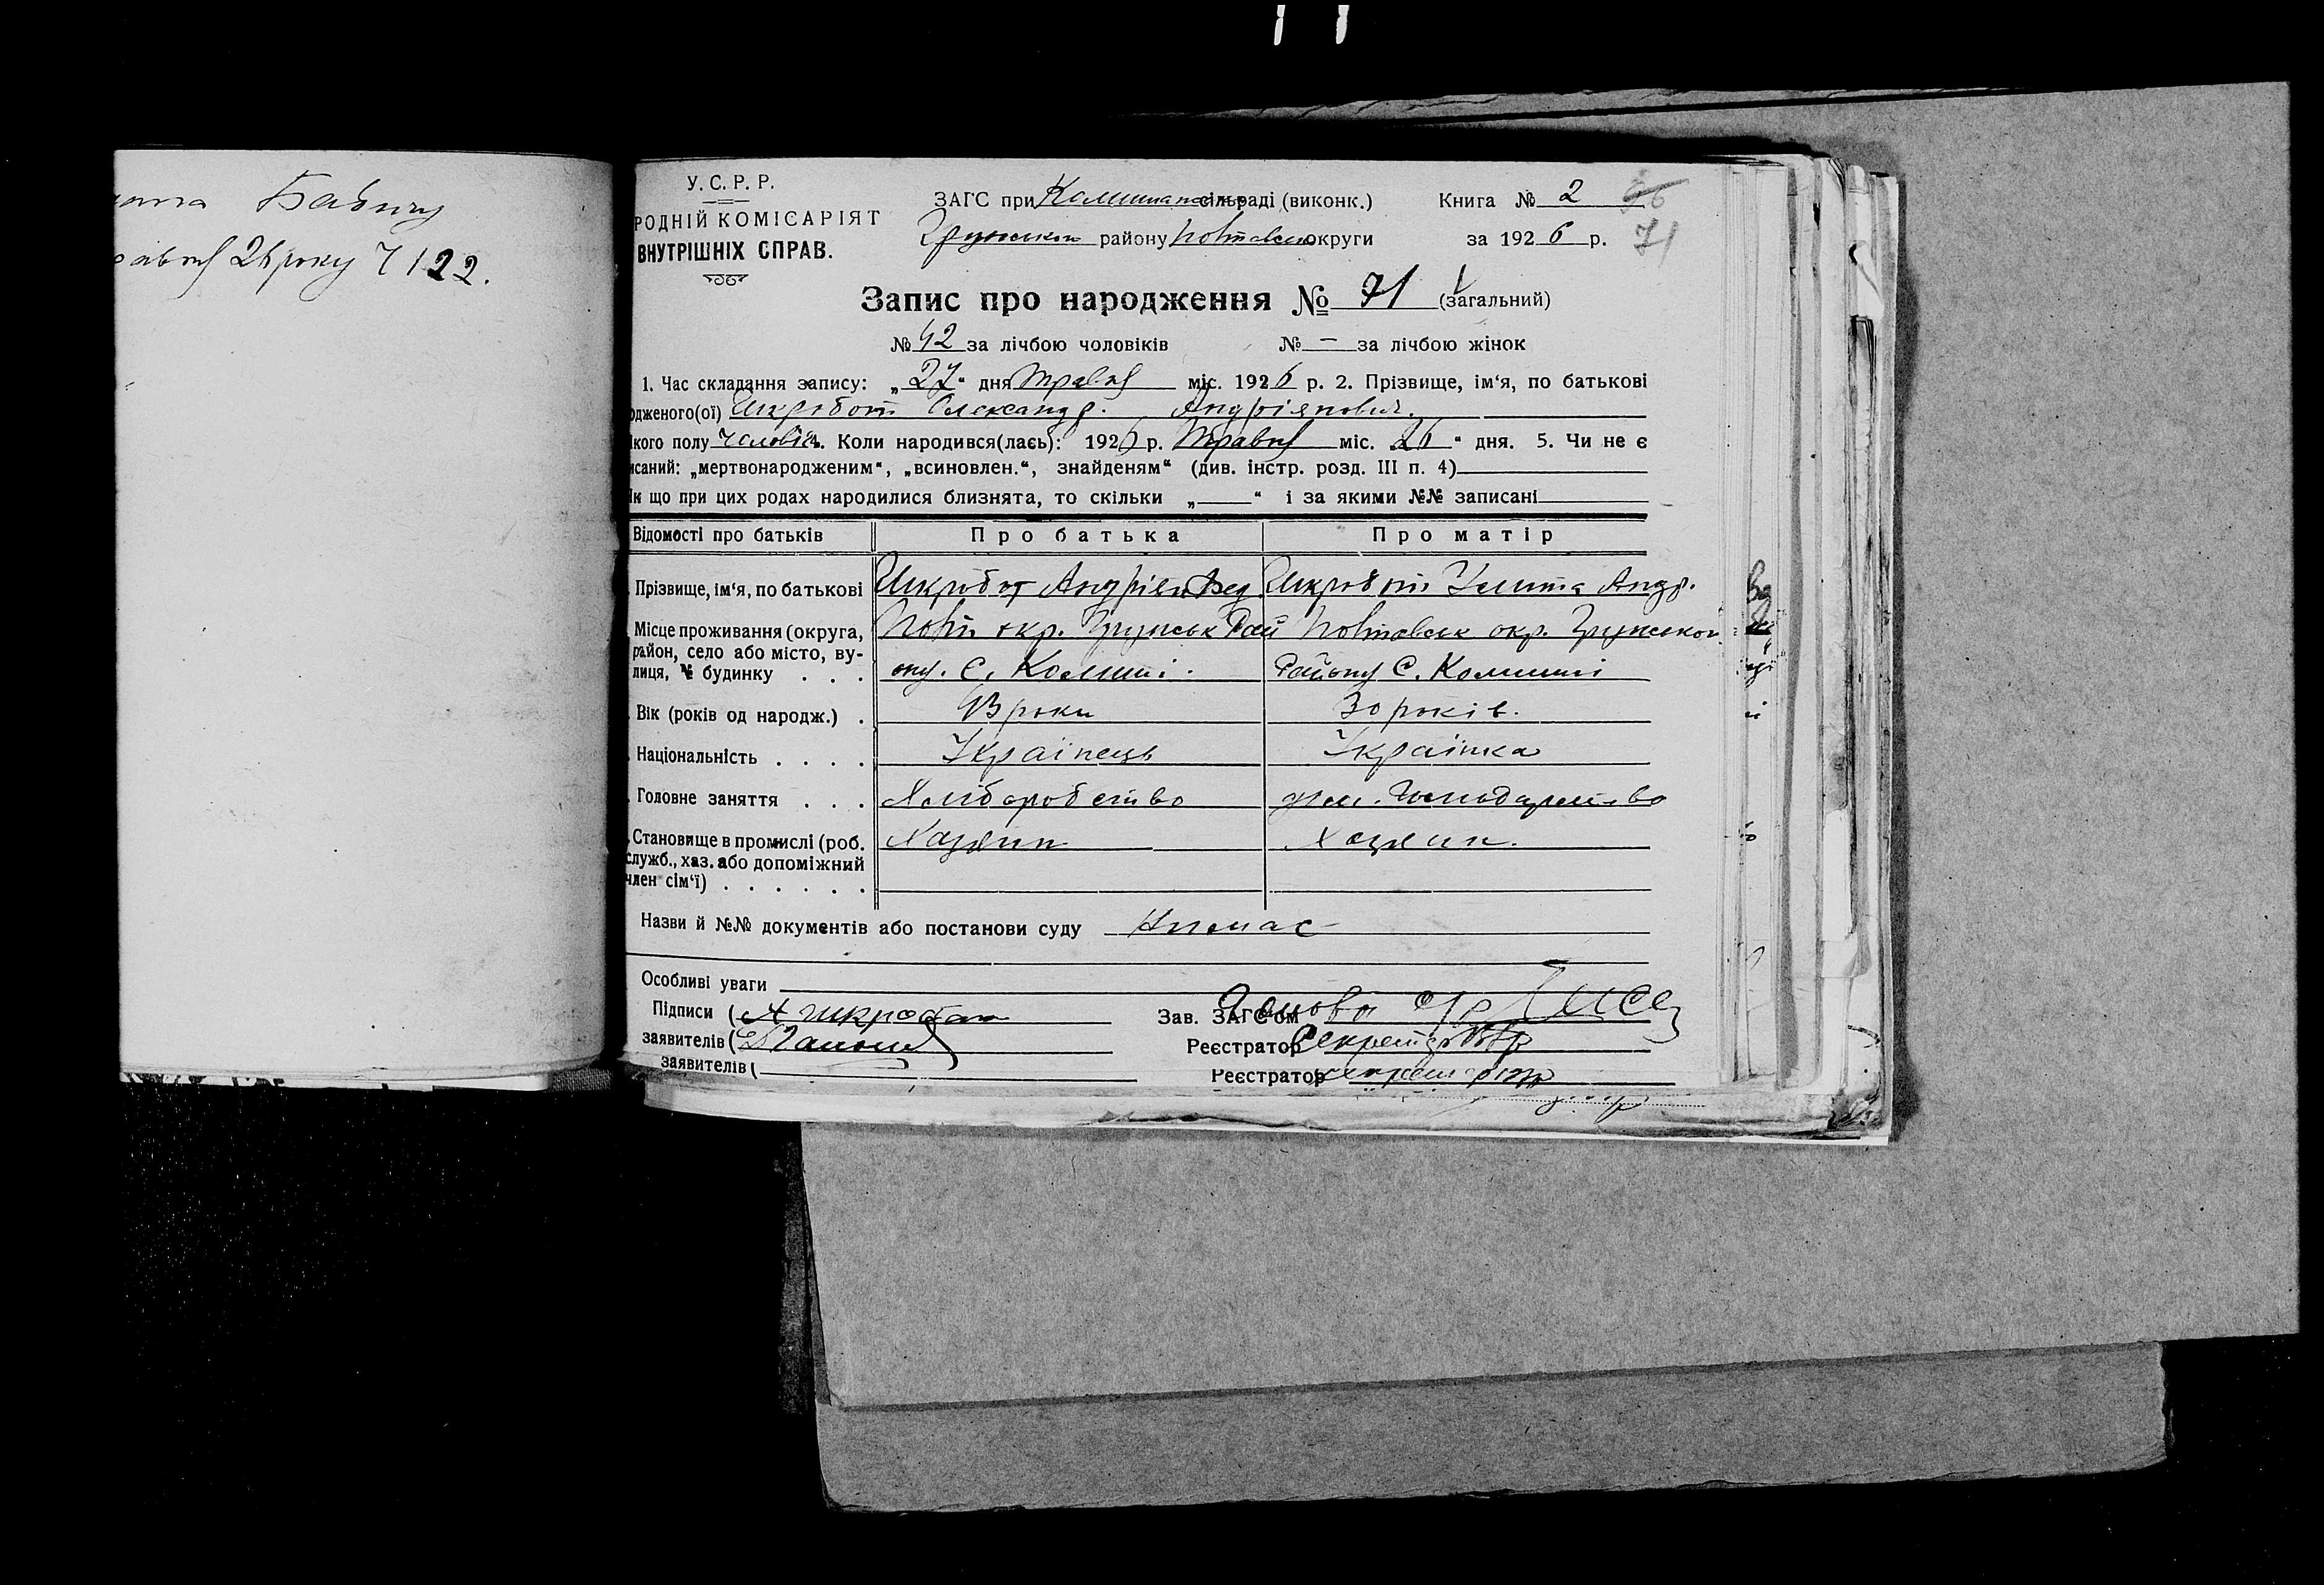 Бабичу
26 року 7122.
У. С. Р. Р.
РОДНІЙ КОМІСАРІЯТ
ВНУТРІШНІХ СПРАВ.
ЗАГС при сільраді (виконк.) Книга № 2
району округи за 1926 р. 71
Запис про народження № 71 (загальний)
№ 42 за лічбою чоловіків № — за лічбою жінок
1. Час складання запису: „27“ дня Травня міс. 1926 р. 2. Прізвище, ім‘я, по батькові
одженого(ої) Шкробот Олександр. Андріянович.
якого полу 4. Коли народився(лаєь): 1926 р. Травня міс. 26 “ дня. 5. Чи не є
исаний: „мертвонародженим“, „всиновлен.“, знайденям“ (див. інстр. розд. III п. 4)
Як що при цих родах народилися близнята, то скільки „ “ і за якими №№ записані
Відомості про батьків Про батька Про матір
Прізвище, ім‘я, по батькові Шкробот Андріян Шкробот Улита Андр.
Місце проживання (округа, Полт окр. Грунськ Рай Полтавськ окр. Грунського
район, село або місто, ву-
лиця, № будинку . . . ону. С. Району С.
Вік (років од народж.) . 43 роки 30 років.
Національність . . . . Українець Українка
Головне заняття . . . Хліборобство дом. Господарство
Становище в промислі (роб. Хазяин Хазяин.
служб., хаз. або допоміжний
член сім‘ї) . . . . . .
Назви й №№ документів або постанови суду Немає
Особливі уваги
Підписи ( А Шкробот Зав. ЗАГС‘ом Голова с/р
заявителів ( Реєстратор Секретар
заявителів ( Реєстратор